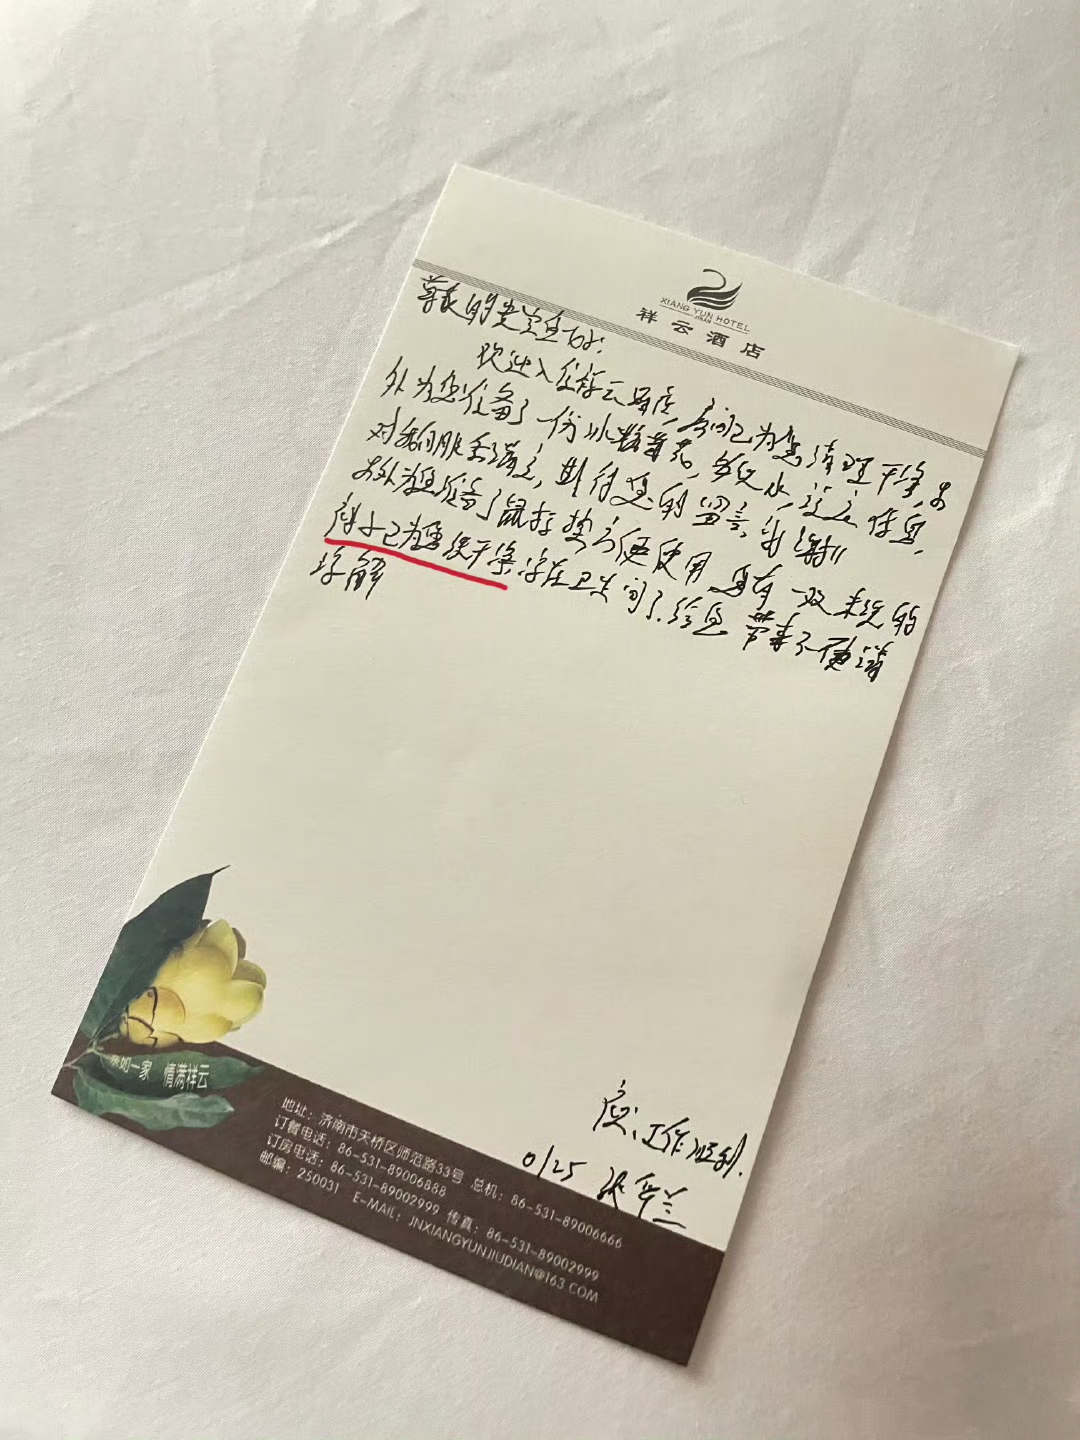 XIANG YUN HOTEL
祥云酒店
尊敬的贵宾您好:
欢迎入住祥云酒店,房间已为您清理干净,另
外为您准备了一份冰糖黄瓜,多喝水,注意休息,
对我们服务满意,期待您的留言,谢谢!!
另外为您准备了鼠标垫方便使用,您有一双未洗的
袜子已为您洗干净,凉在卫生间了.给您带来不便请
谅解
应:工作顺利.
0125 张军兰
亲如一家 情满祥云
地址:济南市天桥区师范路33号 总机:86-531-89006666
订餐电话:86-531-89006888
订房电话:86-531-89002999 传真:86-531-89002999
邮编:250031 E-MAIL:JNXIANGYUNJIUDIAN@163.COM